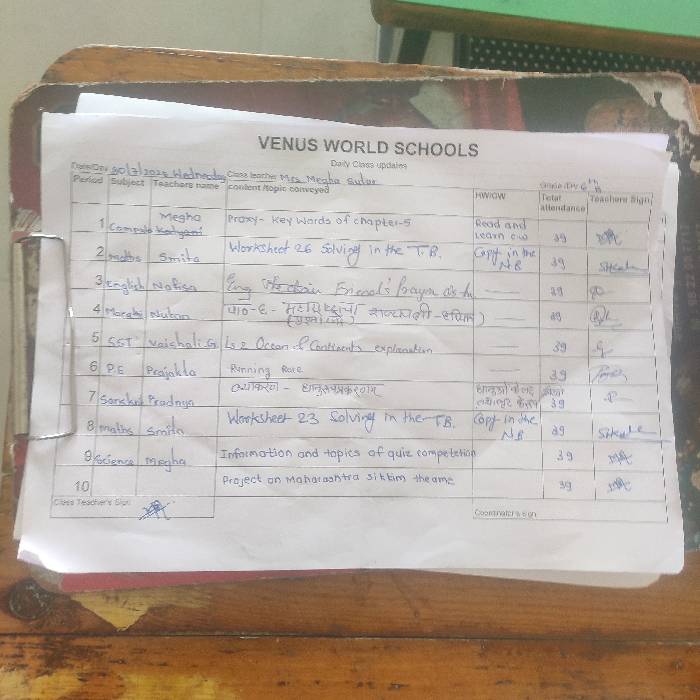 VENUS WORLD SCHOOLS
Daily Class updates
Date/Day 30/7/2025 Wednesday Class teacher Mrs. Megha Sutar Grade /Div 6th B
Period Subject Teachers name content /topic conveyed HW/CW Total attendance Teachers Sign
1 Computo Megha Kalyani Proxy- Key Words of chapter-5 Read and learn cw 39
2 maths Smita Worksheet 26 Solving in the T.B. Copy in the NB 39
3 English Nafisa Eng 39
4 Marathi Nutan पाठ-६- 39
5 SST Vaishali.G Ls 2 Ocean & Continents explanation 39
6 P.E Prajakta Running Race 39
7 Sanskrit Pradnya व्याकरण - 39
8 maths Smita Worksheet 23 Solving in the T.B. Copy in the NB 39
9 Science Megha Information and topics of quiz competetion 39
10 Project on Maharashtra sikkim theame 39
Class Teacher's Sign Coordinator's sign